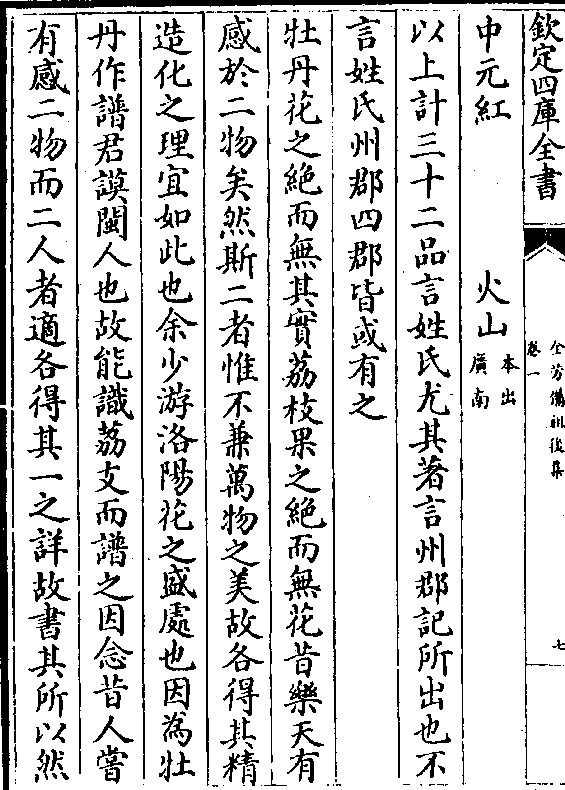 欽定四庫全書
全芳備祖後集
卷一
七
中元紅
火山
本出
廣南
以上計三十二品言姓氏尤其著言州郡記所出也不
言姓氏州郡四郡皆或有之
牡丹花之絶而無其實荔枝果之絶而無花昔樂天有
感於二物矣然斯二者惟不兼萬物之美故各得其精
造化之理宜如此也余少游洛陽花之盛處也因為牡
丹作譜君謨閩人也故能識荔支而譜之因念昔人嘗
有感二物而二人者適各得其一之詳故書其所以然